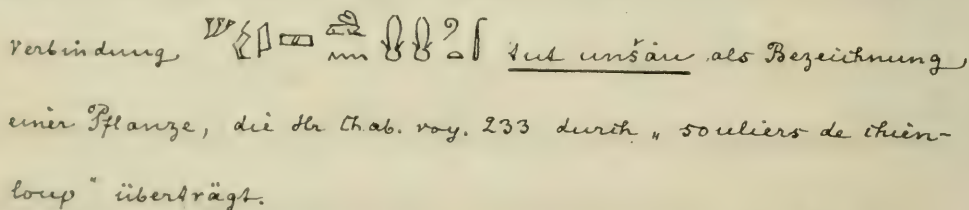 Verbindung tut unšáu als Bezeichnung
einer Pflanze, die Hr Chab. voy. 233 durch „souliers de chien-
loup“ überträgt.